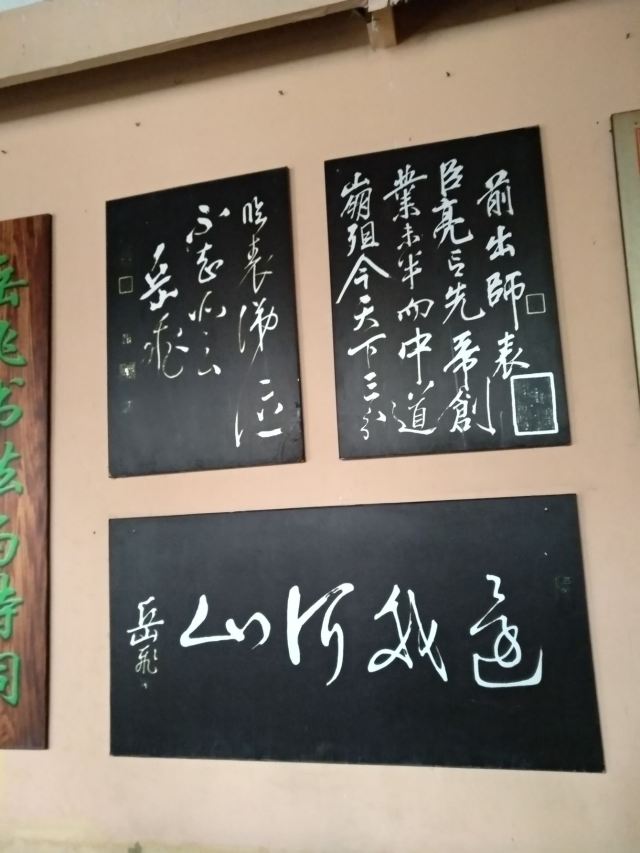 前出師表
臣亮言先帝創
業未半而中道
崩殂今天下三分
臨表涕泣
不知所云
岳飛
還我河山
岳飛
岳飞书法